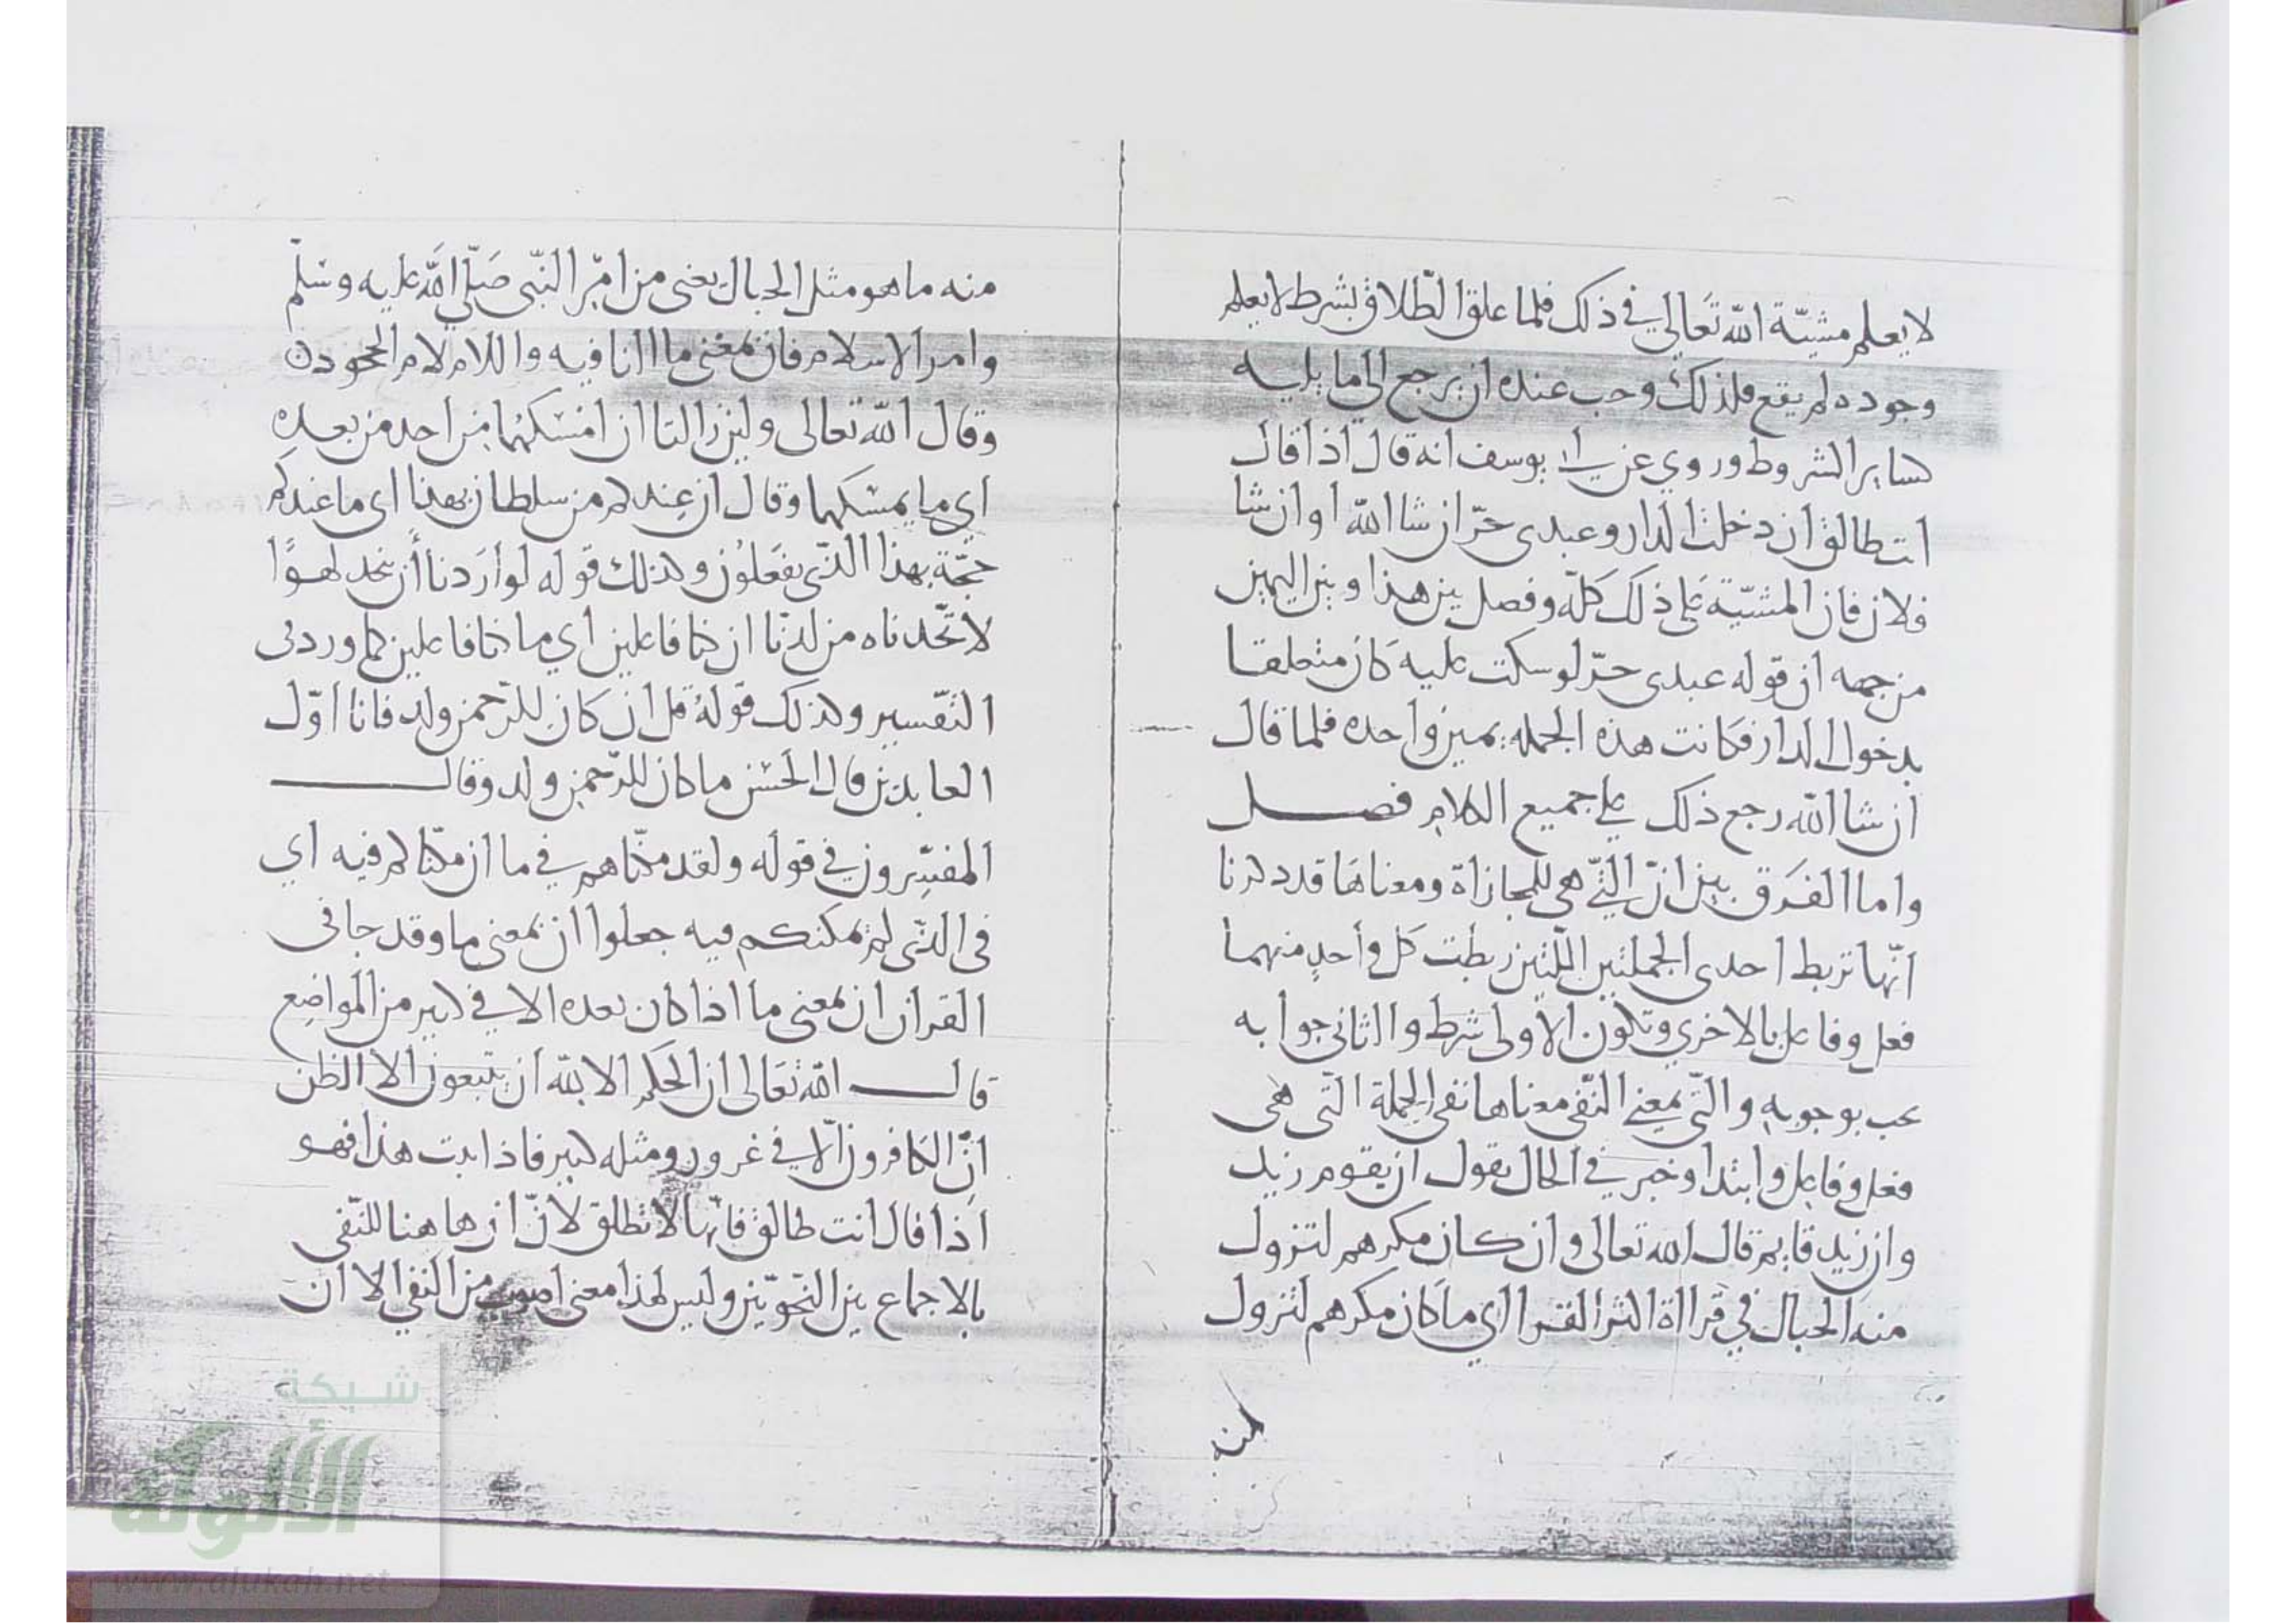 لا يعلم مشيّة الله تَعَالى في ذلك فلما علق الطّلاق بشرط لا يعلم
وجوده لم يقع فلذلك وجب عنده ان يرجع الى ما يليه
كساير الشروط وروي عن ابي يوسف انه قال اذا قال
انت طالق ان دخلت الدار وعبدى حرّ ان شا الله او ان شا
فلان فان المشيّة على ذلك كلّه وفصل بين هذا وبين اليمين
من جهه ان قوله عبدى حرّ لو سكت عليه كان متعلقا
بدخول الدار فكانت هذه الجمله يمين واحده فلما قال
ان شا الله رجع ذلك على جميع الكلام فصل
واما الفرق بين ان الّتي هي للمجازاة ومعناها قد ذكرنا
انّها تربط احدى الجملتين اللّتين ربطت كل وأحدٍ منهما
فعل وفاعل بالاخرى وتكون الاولى شرط والثانى جوابه
يجب بوجوبه والتّي بمعنى النّفى معناها نفى الجملة التّى هى
فعل وفاعل وابتدا وخبر في الحال يقول ان يقوم زيد
وان زيد قايم قال الله تعالى وان كان مكرهم لتزول
منه الجبال في قراة اكثر القرا اي ما كان مكرهم لتزول
منه
منه ما هو مثل الجبال يعنى من امْر النّبى صَلّى الله عليه وسَلّم
وامر الاسلام فان بمعنى ما النافيه واللام لام الجحود ن
وقال الله تعالى ولين زالتا ان امْسَكَهُما مِن احد من بعدِه
اي ما يمسكهما وقال ان عِندكم من سلطان بهذا اى ما عندكم
حجّة بهذا الذّى يفعَلوُن وكذلك قوله لو ارَدنا أن نتخذ لهوًا
لا تّخذناه من لدنّا ان كنا فاعلين اي ما كنا فاعلين كما ورد فى
التفّسير وكذلك قولهُ قل ان كان للرّحمن ولد فانا اوّل
العابدين قال الحَسْن ما كان للرّحمن ولد وقال
المفسِّرون في قوله ولقد مكّناهم في ما ان مكّناكم فيه اي
فى الذّى لم نمكنكم فيه جعلوا ان بمعنى ما وقد جا فى
القران ان بمعنى ما اذا كان بعده الا في كثير من المواضِع
قال الله تعَالى ان الحكم الا لله ان يتبعون الا الظن
انِ الكافرون الّا في غرور ومثله كثير فاذا ثبت هذا فهو
اذا قال انت طالق فانّها لا تطلق لانّ ان هاهنا للنّفى
بالاجماع بين النّحويّين وليس لهذا معنى اصوب من النفي الا ان
شبكة
الألوكة
www.alukah.net